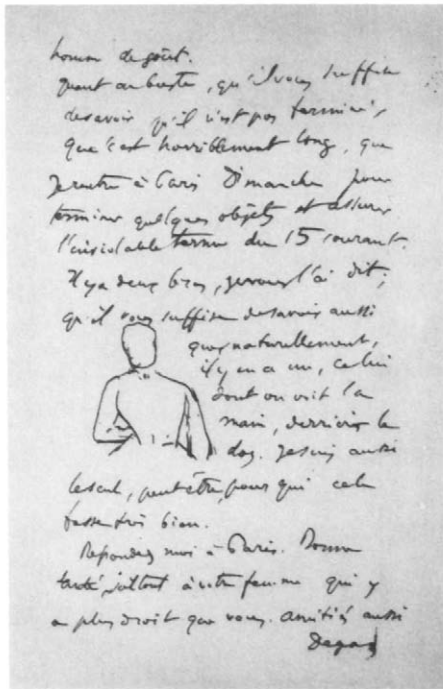 homme de goût.
Quant au buste, qu'il vous suffise
de savoir qu'il n'est pas terminé,
que c'est horriblement long, que
je rentre à Paris Dimanche pour
terminer quelques objets et assurer
l'inviolable terme du 15 courant.
Il y a deux bras, je vous l'ai dit;
qu'il vous suffise de savoir aussi
que, naturellement,
il y en a un, celui
dont on voit la
main, derrière le
dos. Je suis aussi
le seul, peut être, pour qui cela
fasse très bien.
Répondez moi à Paris. Bonne
santé surtout à votre femme qui y
a plus droit que vous. Amitiés aussi
Degas